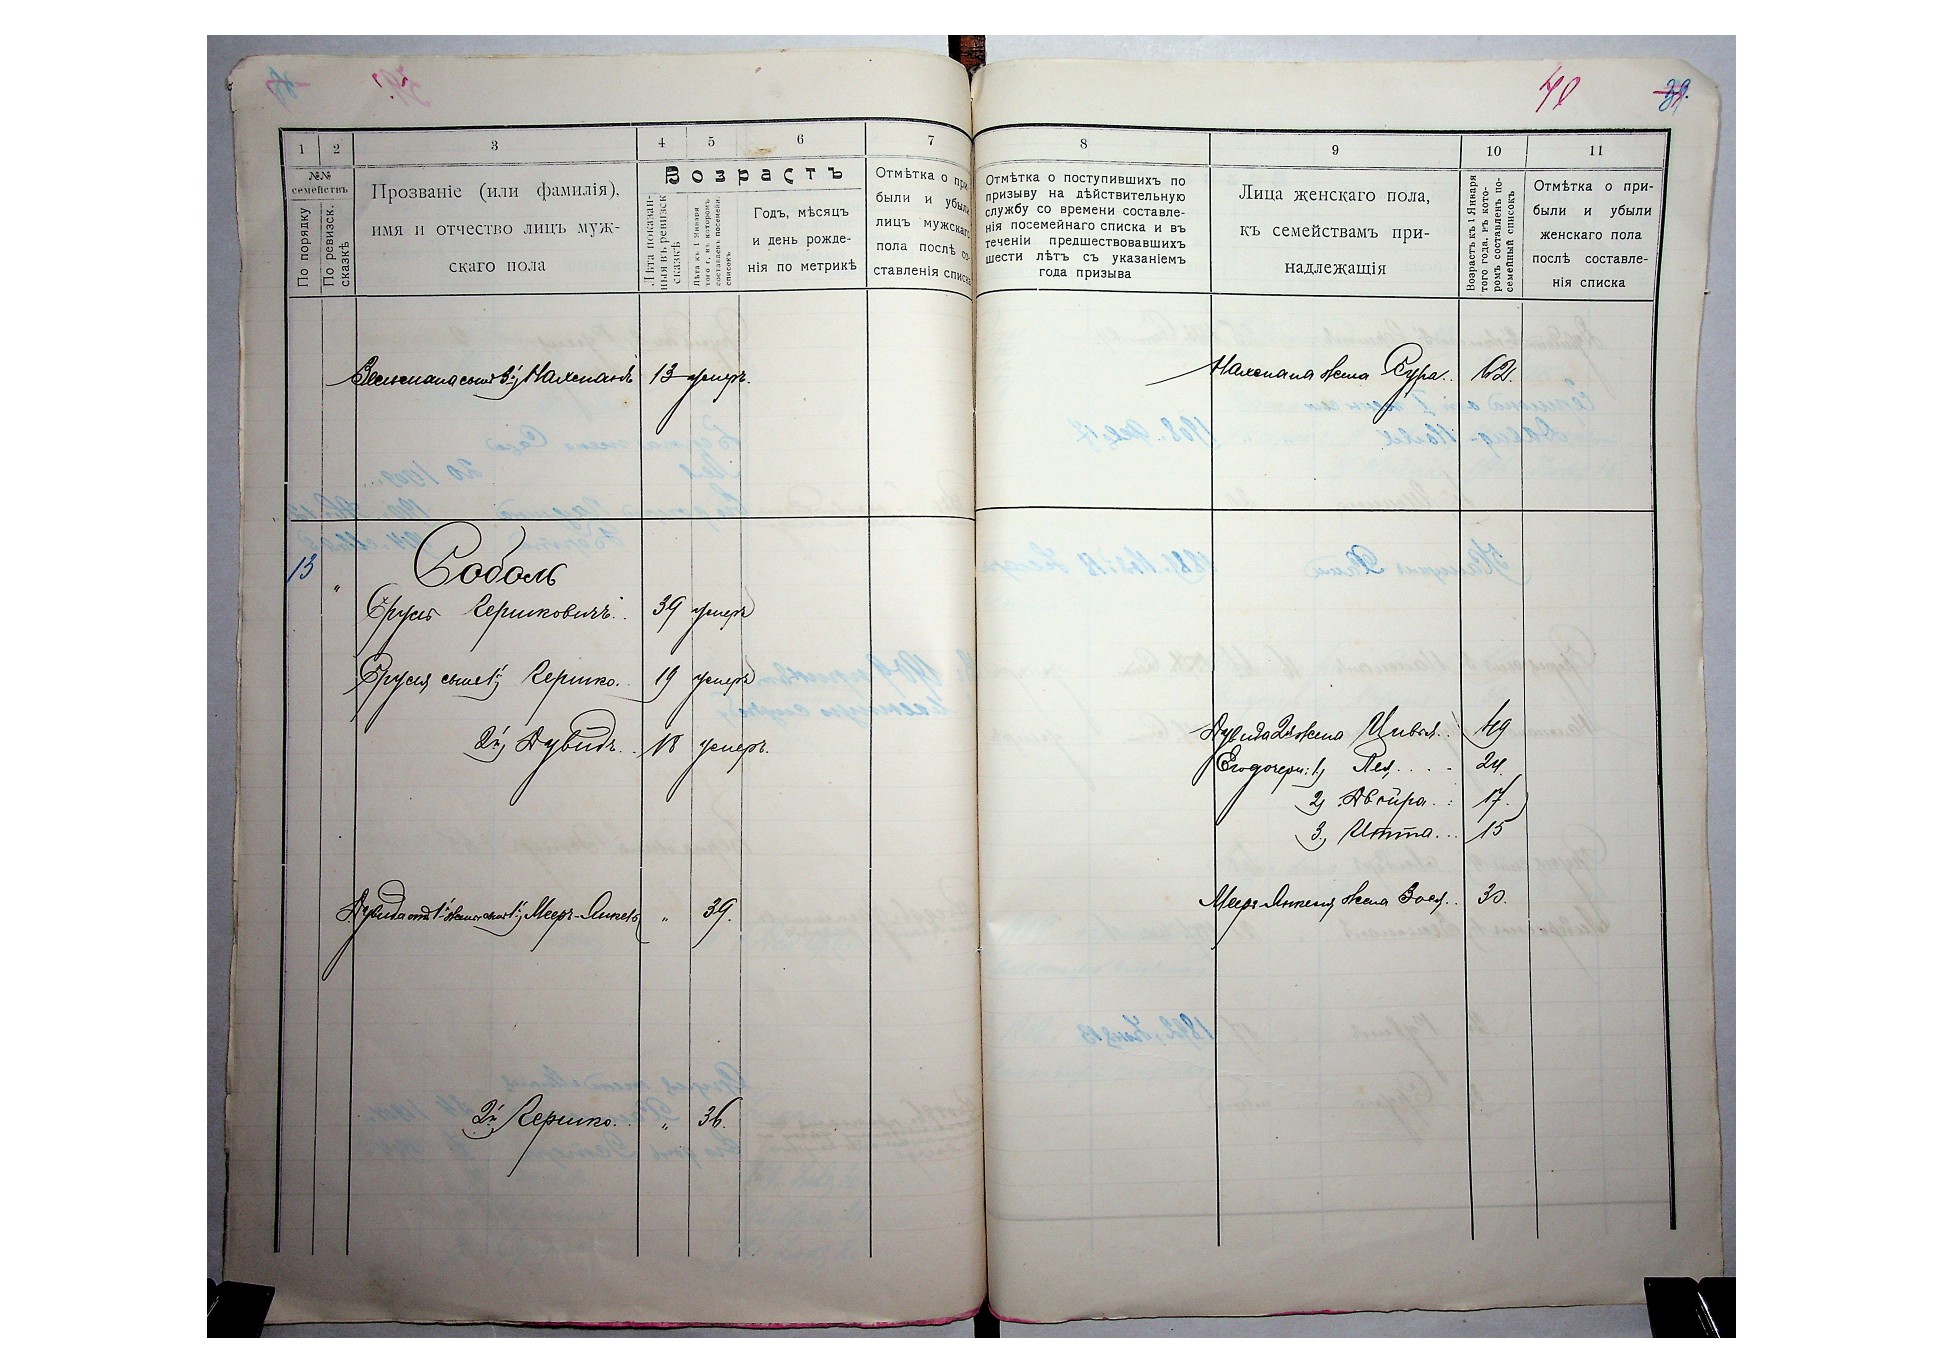 1
2
3
4
5
6
7
№№
семействъ
По порядку
По ревизск.
сказкѣ
Прозваніе (или фамилія),
имя и отчество лицъ муж-
скаго пола
Возрастъ
Лѣта показан-
ныя въ ревизск
сказкѣ
Лѣта къ 1 Января
того г., въ которомъ
составленъ посемейн.
списокъ
Годъ, мѣсяцъ
и день рожде-
нія по метрикѣ
Отмѣтка о при
были и убыли
лицъ мужскаго
пола послѣ со-
ставленія списка
13 умеръ.
13
"
Соболь
Срулъ Гершковичъ.
39 умеръ
Сруля сынъ 1й, Гершко.
19 умеръ
2й, Дувидъ.
18 умеръ.
Дувида отъ 1й жены сынъ 1й, Мееръ-Янкель
" 39.
2й, Гершко.
" 36.
40
39.
8
9
10
11
Отмѣтка о поступившихъ по
призыву на дѣйствительную
службу со времени составле-
нія посемейнаго списка и въ
теченіи предшествовавшихъ
шести лѣтъ съ указаніемъ
года призыва
Лица женскаго пола,
къ семействамъ при-
надлежащія
Возрастъ къ 1 Января
того года, въ кото-
ромъ составленъ по-
семейный списокъ
Отмѣтка о при-
были и убыли
женскаго пола
послѣ составле-
нія списка
жена Сура. 62.
Дувида 2я жена Цивья. 49
Его дочери: 1, Лея. 24.
2, Двейра. 17.
3, Итта. 15
Меера-Янкеля жена Зося. 30.